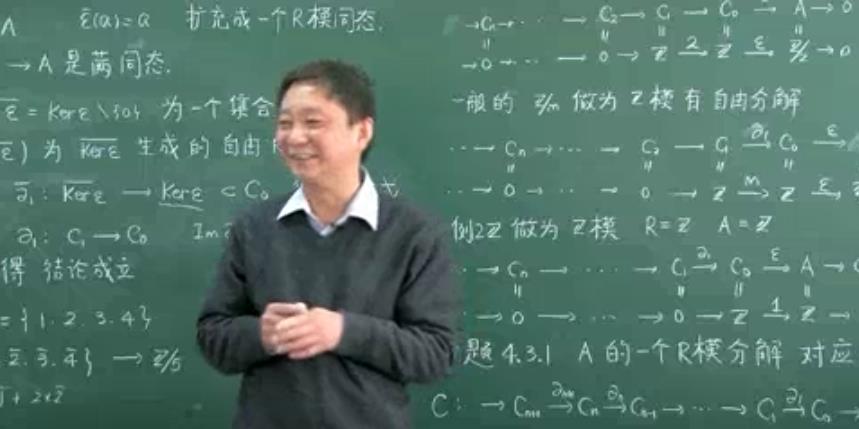 A ε̄(a)=a 扩充成一个R模同态.
→ A 是满同态.
= Kerε \{0} 为一个集合
ε) 为 K̅e̅r̅ε̅ 生成的自由
∂̄₁: K̅e̅r̅ε̅ → Kerε ⊂ C₀
∂₁: C₁ → C₀ Im
得 结论成立
= {1. 2. 3. 4}
2̄. 3̄. 4̄} → Z/5
+ 2×2̄
→ Cₙ → ··· C₂ → C₁ → C₀ → A → 0
‖ ‖ ‖ ‖ ‖
→ 0 → ··· 0 → Z 2→ Z ε→ Z/2 → 0
一般的 Z/n 做为 Z 模 有 自由分解
··· → Cₙ → ··· → C₂ → C₁ ∂₁→ C₀ ε→
‖ ‖ ‖ ‖
··· → 0 → ··· → 0 → Z → Z ε→
例2 Z 做为 Z模 R=Z A=Z
··· → Cₙ → ··· ··· → C₁ ∂₁→ C₀ ε→ A →
‖ ‖ ‖ ‖
··· → 0 → ··· ··· → 0 → Z 1→ Z →
题 4.3.1 A 的一个R模分解 对应
C: → Cₙ₊₁ ∂ₙ₊₁→ Cₙ ∂ₙ→ Cₙ₋₁ → ··· → C₁ ∂₁→ C₀ →